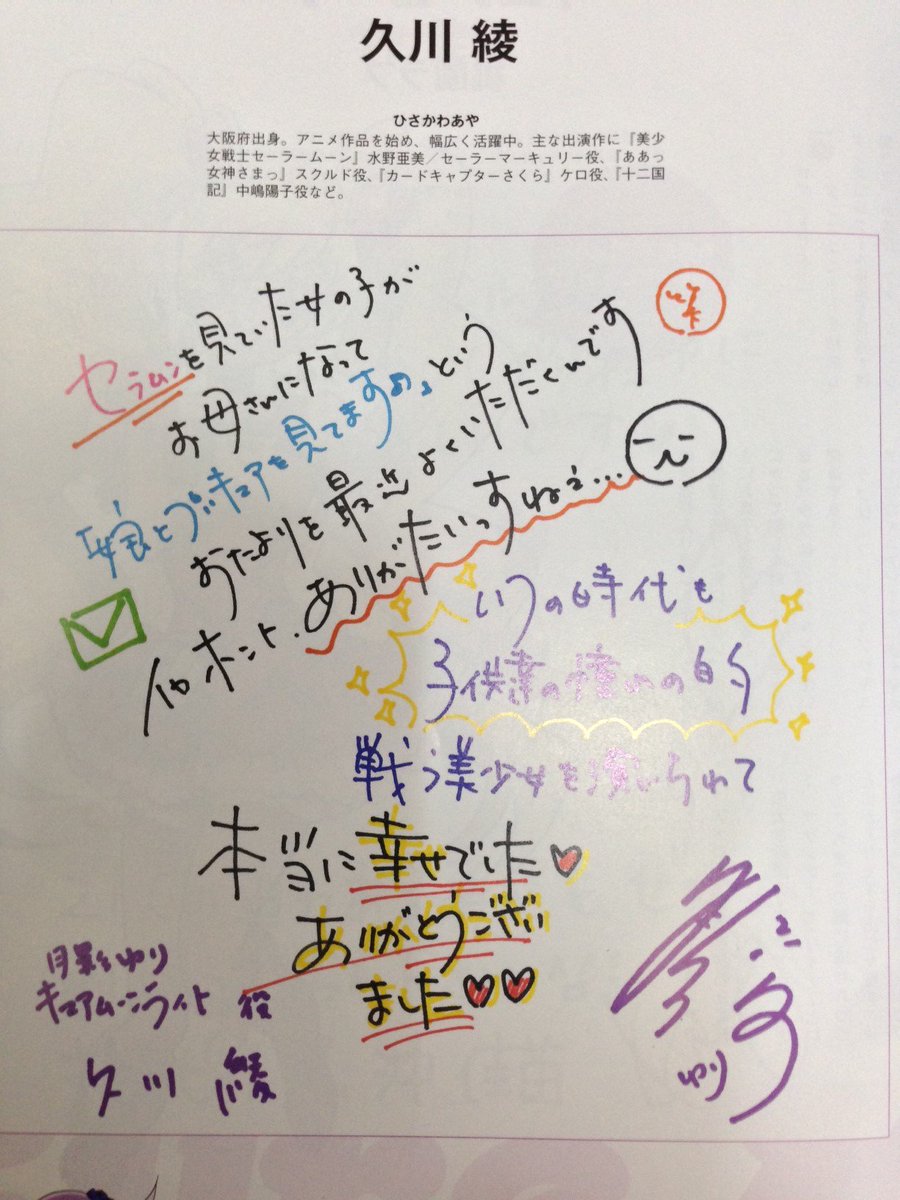 久川 綾
ひさかわあや
大阪府出身。アニメ作品を始め、幅広く活躍中。主な出演作に『美少
女戦士セーラームーン』水野亜美／セーラーマーキュリー役、『ああっ
女神さまっ』スクルド役、『カードキャプターさくら』ケロ役、『十二国
記』中嶋陽子役など。
セラムンを見ていた女の子が
お母さんになって
「娘とプリキュアを見てますめ」という
おたよりを最近よくいただくんです
笑
イヤホント、ありがたいっすねぇ…
いつの時代も
子供達の憧れの的
戦う美少女を演じられて
本当に幸せでした
ありがとうござい
ました
月影ゆり
キュアムーンライト 役
久川 綾
ゆり